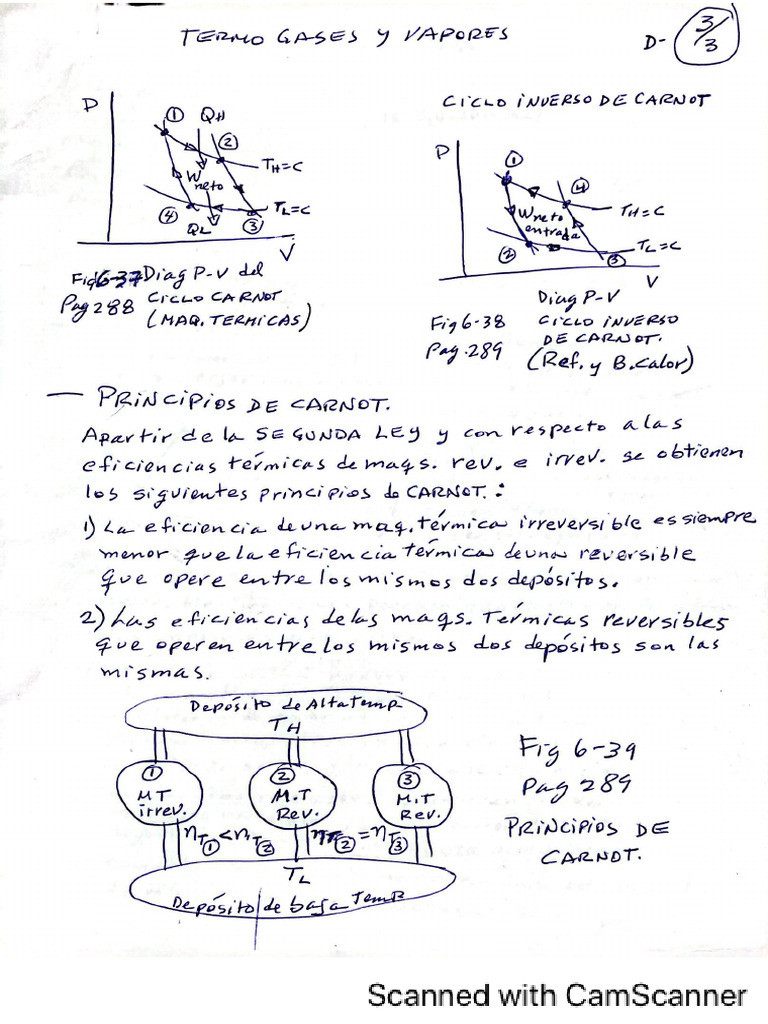 TERMO GASES Y VAPORES
D- 3/3
P
① QH
②
TH=C
Wneto
④
QL
③
TL=C
V
Fig 6-37 Diag P-V del
Pag 288 CICLO CARNOT
(MAQ. TERMICAS)
CICLO INVERSO DE CARNOT
P
①
④
TH=C
Wneto
entrada
②
TL=C
③
V
Diag P-V
Fig 6-38 CICLO INVERSO
Pag. 289 DE CARNOT.
(Ref. y B. Calor)
— PRINCIPIOS DE CARNOT.
Apartir de la SEGUNDA LEY y con respecto a las
eficiencias térmicas de maqs. rev. e irrev. se obtienen
los siguientes principios de CARNOT. :
1) La eficiencia de una maq. térmica irreversible es siempre
menor que la eficiencia térmica de una reversible
que opere entre los mismos dos depósitos.
2) Las eficiencias de las maqs. Térmicas reversibles
que operen entre los mismos dos depósitos son las
mismas.
Depósito de Alta Temp
TH
①
MT
irrev.
②
M.T
Rev.
③
M.T
Rev.
ηT① < ηT②
ηT② = ηT③
TL
Depósito de baja Temp
Fig 6-39
Pag 289
PRINCIPIOS DE
CARNOT.
Scanned with CamScanner